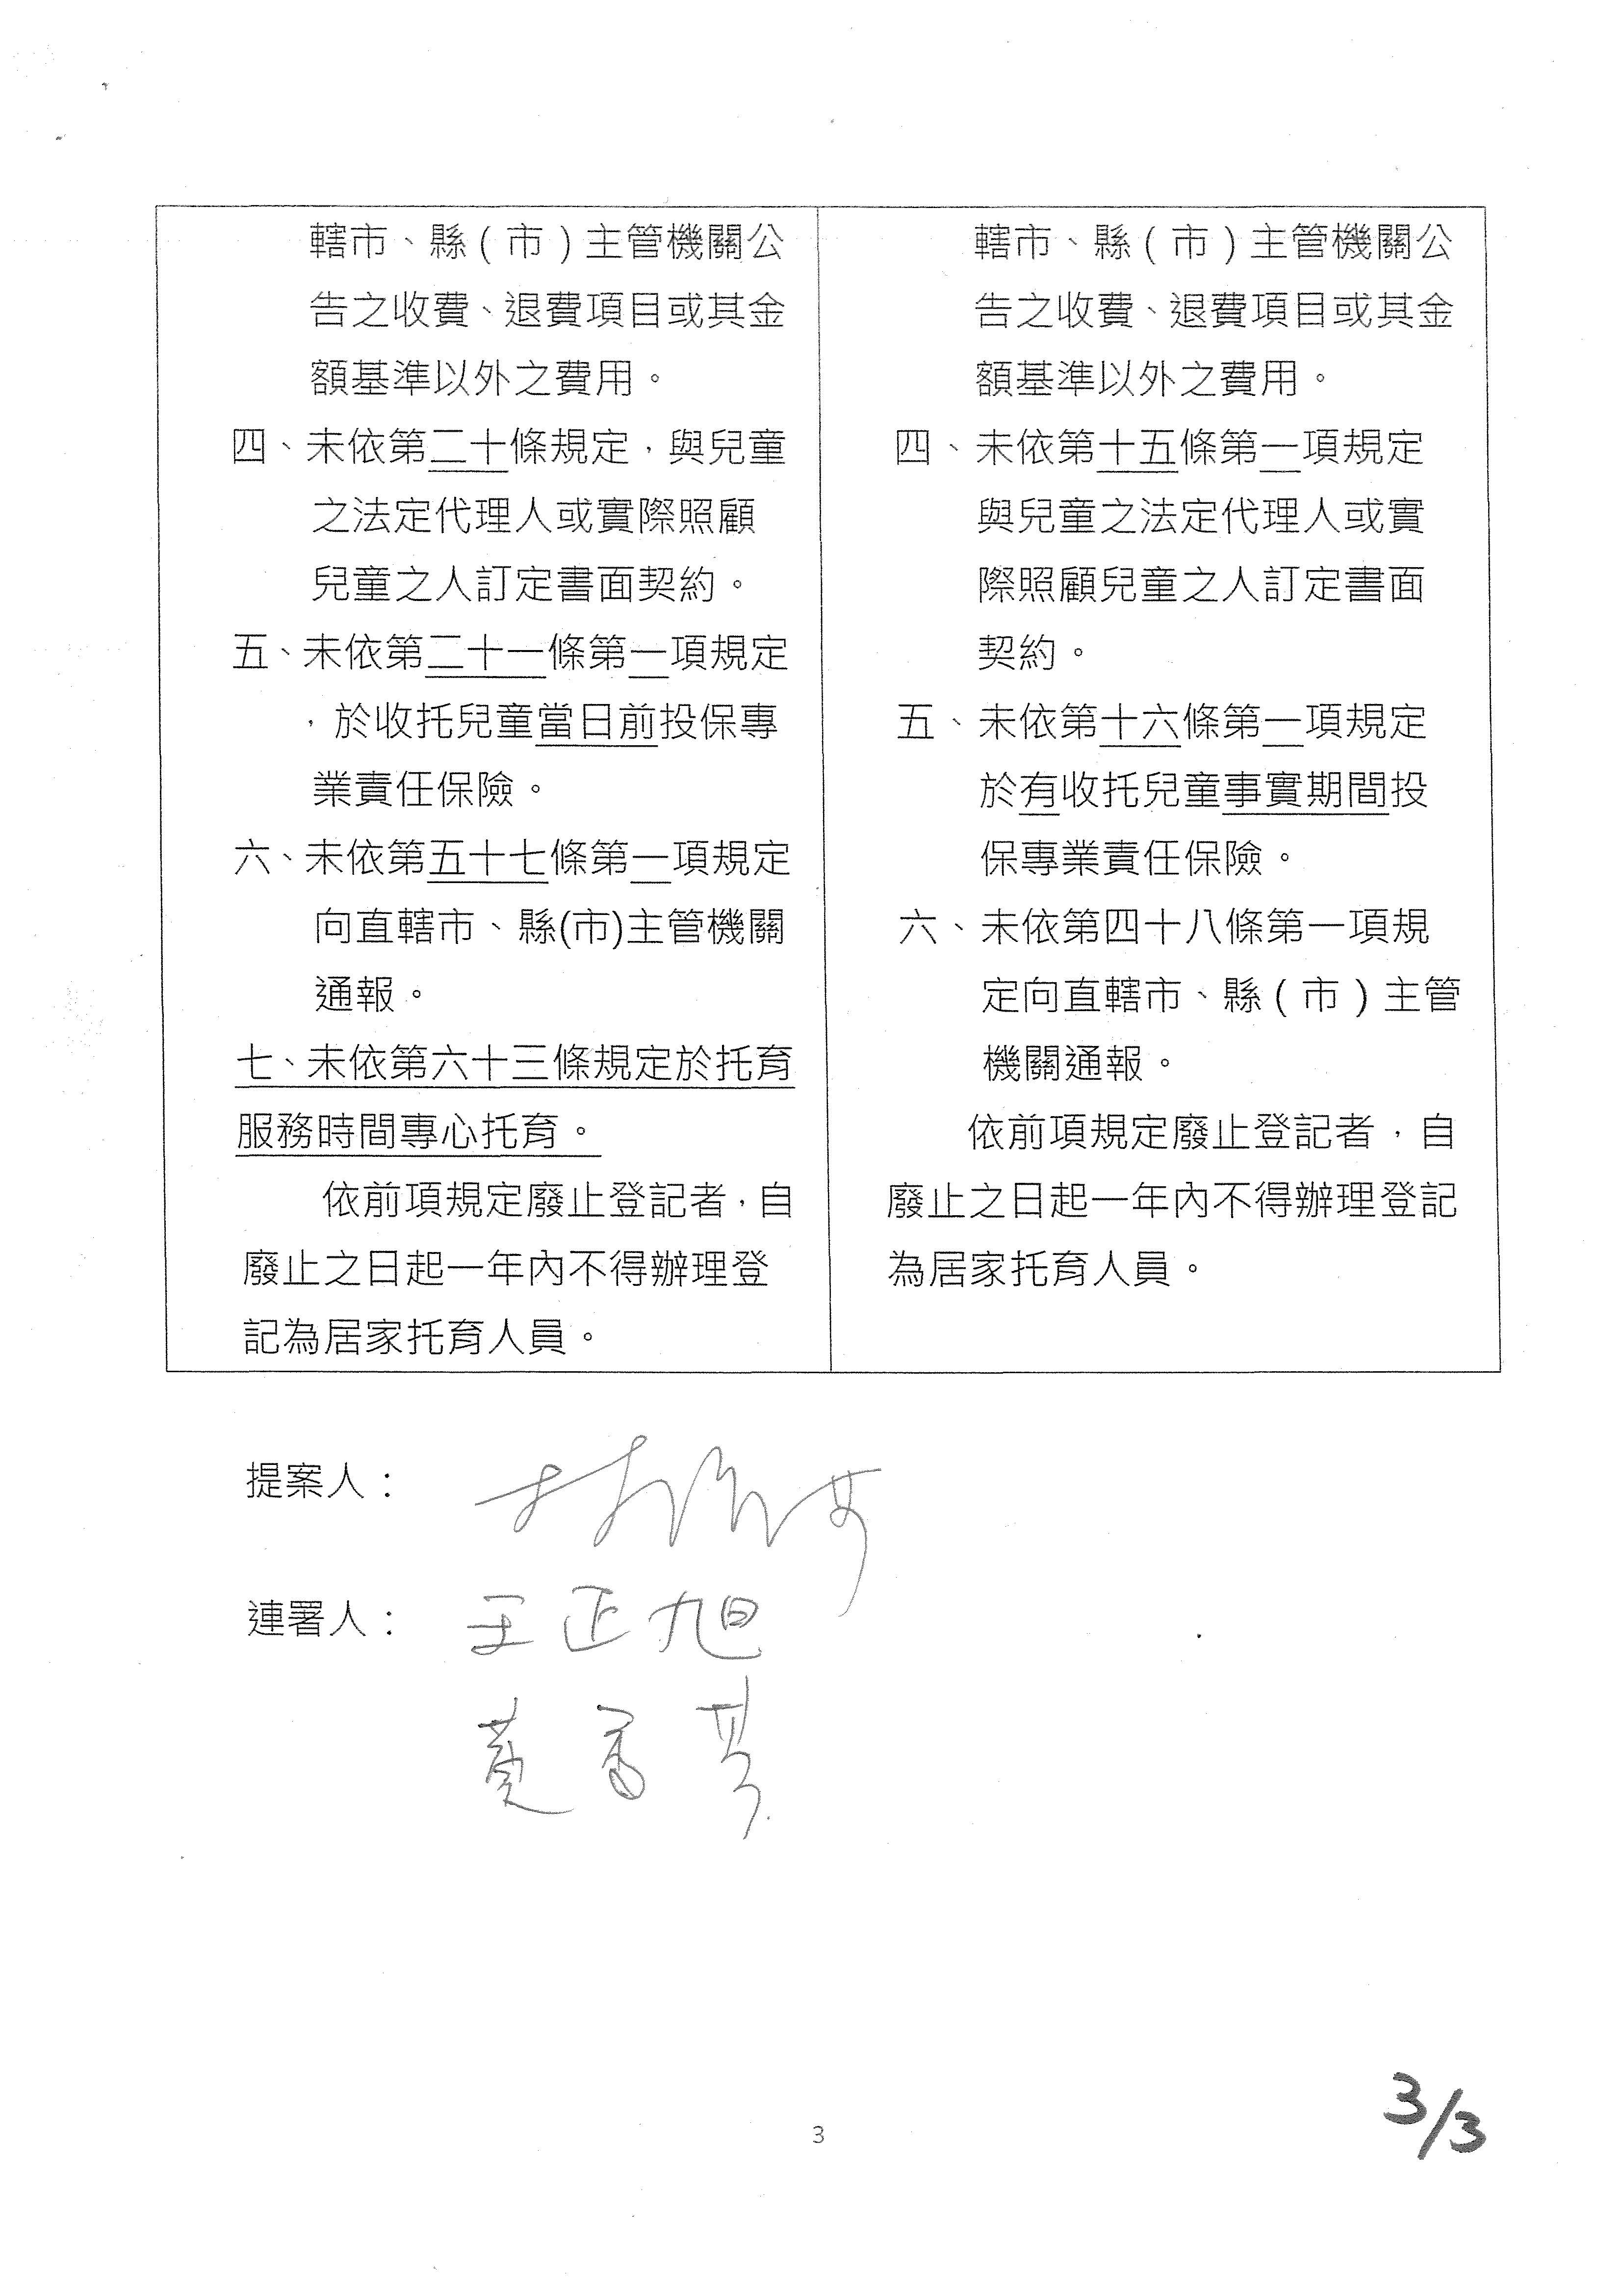 轄市、縣(市)主管機關公
告之收費、退費項目或其金
額基準以外之費用。
四、未依第二十條規定,與兒童
之法定代理人或實際照顧
兒童之人訂定書面契約。
五、未依第二十一條第一項規定
,於收托兒童當日前投保專
業責任保險。
六、未依第五十七條第一項規定
向直轄市、縣(市)主管機關
通報。
七、未依第六十三條規定於托育
服務時間專心托育。
依前項規定廢止登記者,自
廢止之日起一年內不得辦理登
記為居家托育人員。
轄市、縣(市)主管機關公
告之收費、退費項目或其金
額基準以外之費用。
四、未依第十五條第一項規定
與兒童之法定代理人或實
際照顧兒童之人訂定書面
契約。
五、未依第十六條第一項規定
於有收托兒童事實期間投
保專業責任保險。
六、未依第四十八條第一項規
定向直轄市、縣(市)主管
機關通報。
依前項規定廢止登記者,自
廢止之日起一年內不得辦理登記
為居家托育人員。
提案人:
連署人:王正旭
黃秀芳
3
3/3